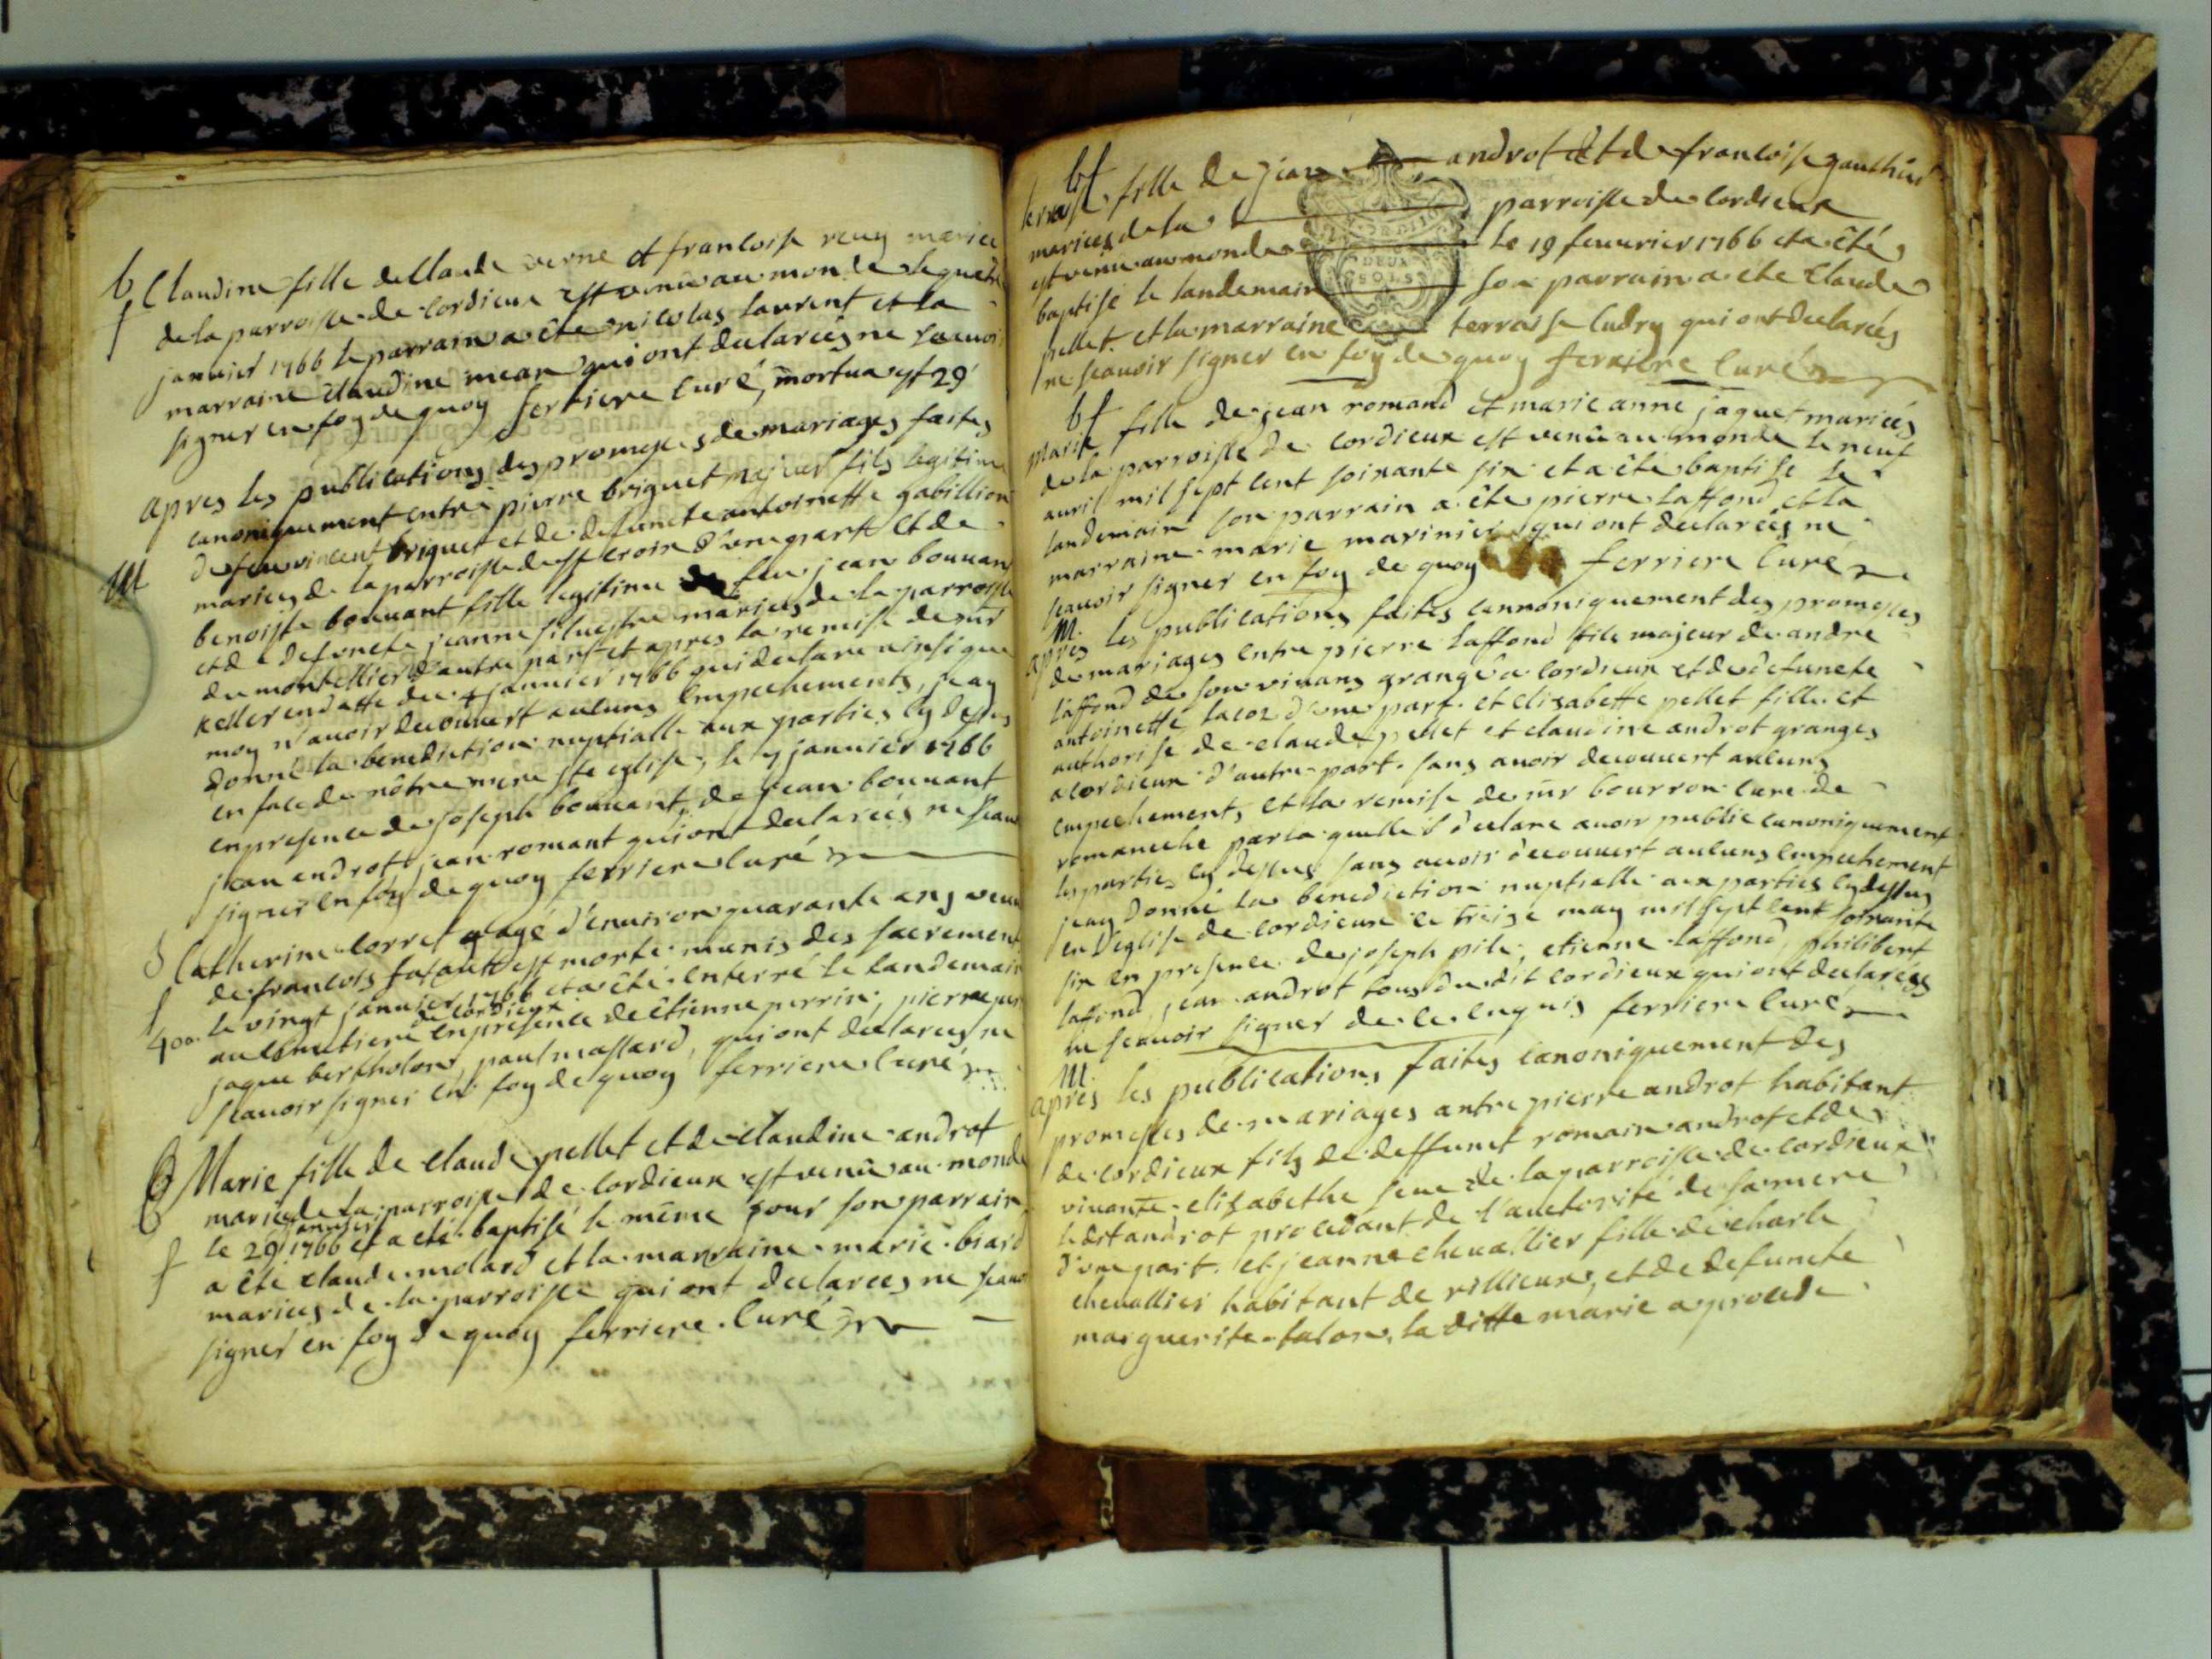 b Claudine fille de Claude verne et francoise reuy mariés
f de la parroisse de cordieux est venu au monde le quatre
janvier 1766 le parrain a été nicolas laurent et la
marraine claudine mean qui ont declareés ne scavoi
signer en foy de quoy ferriere Curé, mortua est 29
apres les publications des promesses de mariages faites
canoniquement entre pierre briguet majeur fils legitime
de feu vincent briguet et de defuncte antoinette gabillion
M mariés de la parroisse de ste croix d'une part et de
benoiste bouuant fille legitime de feu jean bouuan
et de defuncte jeanne siluestre mariés de la parroisse
du montellier d'autre part et apres la remise de mr
keller en datte du 4 januier 1766 qui declare ainsi que
moy n'auoir decouuert aulcuns empechements, jeay
donné la benediction nuptialle aux parties cy dessus
en face de nôtre mere ste eglise, le 7 januier 1766
en presence de joseph bouuant, de jean bouuant
jean androt, jean romant qui ont declareés ne scauoi
signer en foy de quoy ferriere curé
S Catherine corret agé d'enuiron quarante ans veuu
de francois est morte munis des sacrement
f le vingt januier 1766 et a été enterré le landemain
400. au cemetiere de cordieux en presence de etienne perrin, pierre
jaque bertholon, paul massard, qui ont déclareés ne
scauoir signer en foy de quoy ferriere curé
B Marie fille de claude pellet et de claudine androt
mariés de la parroisse de cordieux est venu au monde
le 29 januier 1766 et a eté baptisé le même jour son parrain
f a êté claude molard et la marraine marie biard
mariés de la parroisse qui ont declareés ne scauoi
signer en foy de quoy ferriere Curé
bf
terraise fille de jean androt et de francoise gauthier
mariés de la parroisse de cordieux
est venu au monde le 19 feuurier 1766 et a êté
baptisé le landemain son parrain a ete Claude
pellet et la marraine terraise Cudry qui ont declareés
ne scauoir signer en foy de quoy ferriere Curé
DEUX SOLS
bf
Marie fille de jean romand et marie anne jaquet mariés
de la parroisse de cordieux est venu au monde le neuf
auril mil sept cent soixante six et a êté baptisé le
landemain son parrain a ête pierre laffond et la
marraine marie marinier qui ont declareés ne
scauoir signer en foy de quoy ferriere Curé
M.
apres les publications faites cannoniquement des promesses
de mariages entre pierre laffond fils majeur de andre
laffond de son viuans grangé a cordieux et de defuncte
antoinette lacoz d'une part. et elizabette pellet fille et
authorisé de claude pellet et claudine androt granges
a cordieux d'autre part. sans auoir decouuert aulcuns
empechements, et la remise de mr bourron cure de
romaneche par la quelle il declare auoir publie canoniquement
les parties cy dessus sans auoir decouuert aulcuns empechement
jeay donné la benediction nuptialle aux parties cy dessus
en l'eglise de cordieux ce treize may mil sept cent soixante
six en presence de joseph pile, etienne laffond, philibert
laffond, jean androt tous du dit cordieux qui ont declareés
ne scauoir signer de ce enquis ferriere curé
M.
apres les publications faites canoniquement des
promesses de mariages antre pierre androt habitant
de cordieux fils de deffunct romain androt et de
viuante elizabethe seue de la parroisse de cordieux
ledit androt procedant de l'auctorité de sa mere
d'une part. et jeanne cheuallier fille de charle
cheuallier habitant de rillieux, et de defuncte
marguerite falon, la ditte marie a procede